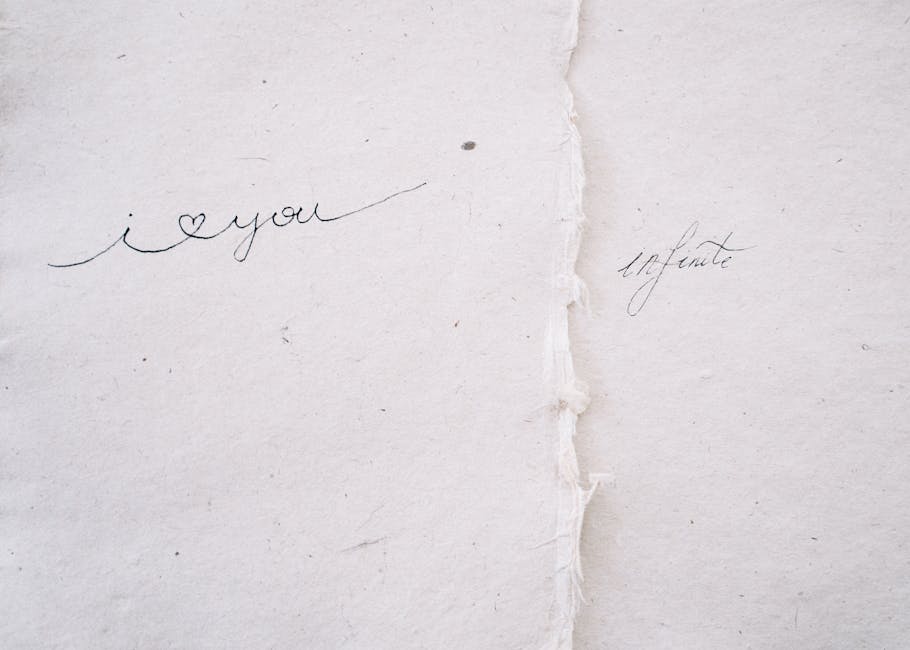 i ♡ you
infinite